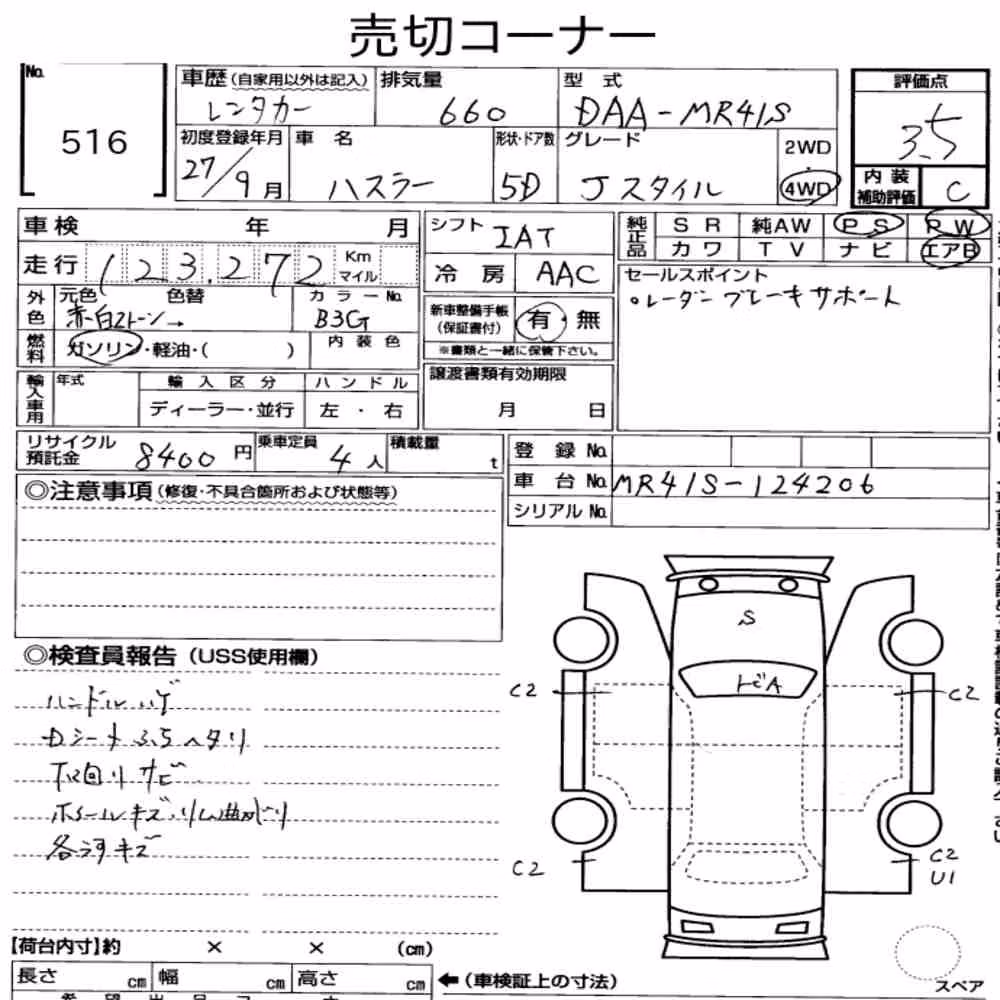 売切コーナー
No.
516
車歴 (自家用以外は記入)
レンタカー
排気量
660
型式
DAA-MR41S
評価点
3.5
初度登録年月
27/9月
車名
ハスラー
形状・ドア数
5D
グレード
Jスタイル
2WD
・
4WD
内装
補助評価
C
車検 年 月
シフト
IAT
純正品
SR 純AW PS PW
カワ TV ナビ エアB
走行 123,272 Km マイル
冷房 AAC
セールスポイント
○レーダーブレーキサポート
外色
元色 色替
赤白2トーン→
カラーNo.
B3G
新車整備手帳
(保証書付)
有・無
※書類と一緒に保管下さい。
燃料
ガソリン・軽油・( )
内装色
輸入車用
年式
輸入区分
ハンドル
ディーラー・並行
左・右
譲渡書類有効期限
月 日
リサイクル
預託金
8400円
乗車定員
4人
積載量
t
登録No.
車台No. MR41S-124206
シリアルNo.
◎注意事項 (修復・不具合箇所および状態等)
◎検査員報告 (USS使用欄)
ハンドルハゲ
Dシートふちヘタリ
下回りサビ
ホイールキズ、リム曲がり
各うすキズ
S
トビA
C2
C2
C2
C2
U1
【荷台内寸】約 × × (cm)
長さ cm 幅 cm 高さ cm
←(車検証上の寸法)
スペア